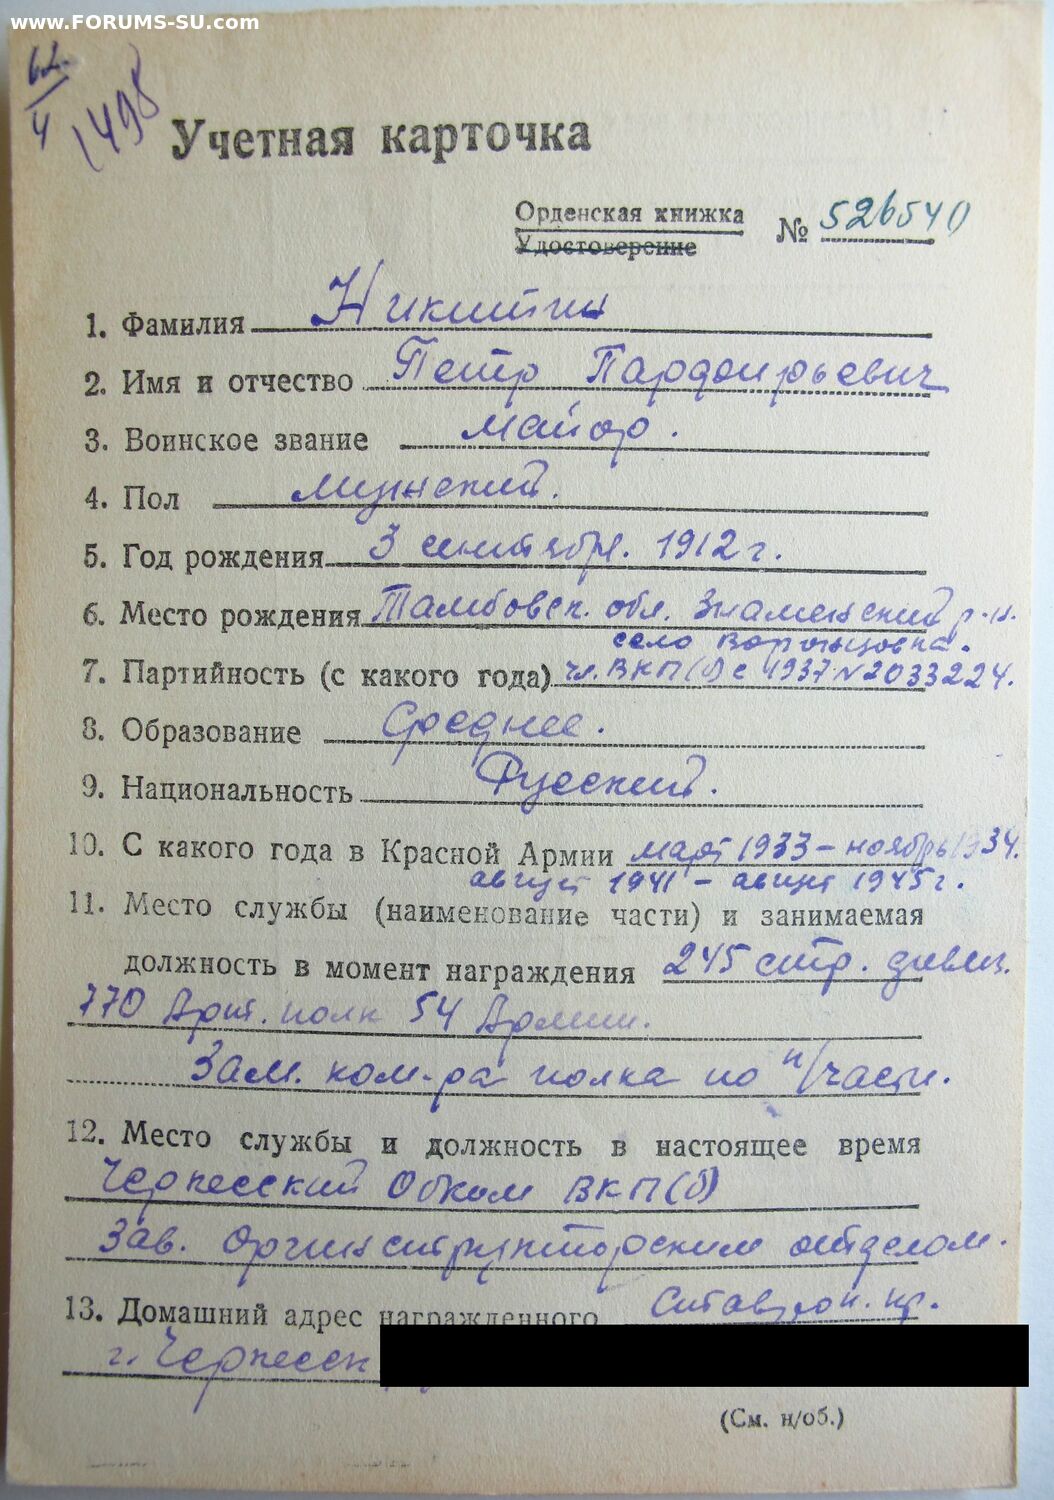 www.FORUMS-SU.com
62
4
1498
Учетная карточка
Орденская книжка
Удостоверение
№ 526540
1. Фамилия Никитин
2. Имя и отчество Петр
3. Воинское звание майор.
4. Пол мужский.
5. Год рождения 3 сентябр. 1912 г.
6. Место рождения Тамбовск. обл. Знаменский р-н.
село Воронцовка.
7. Партийность (с какого года) чл. ВКП(б) с 1937 № 2033224.
8. Образование Среднее.
9. Национальность Русский.
10. С какого года в Красной Армии март 1933 – ноябрь 1934.
август 1941 – август 1945 г.
11. Место службы (наименование части) и занимаемая
должность в момент награждения 245 стр. дивиз.
770 Арт. полк 54 Армии.
Зам. ком-ра полка по п/части.
12. Место службы и должность в настоящее время
Черкесский Обком ВКП(б)
Зав. Оргинструкторским отделом.
13. Домашний адрес награжденного Ставроп. кр.
г. Черкесск
(См. н/об.)